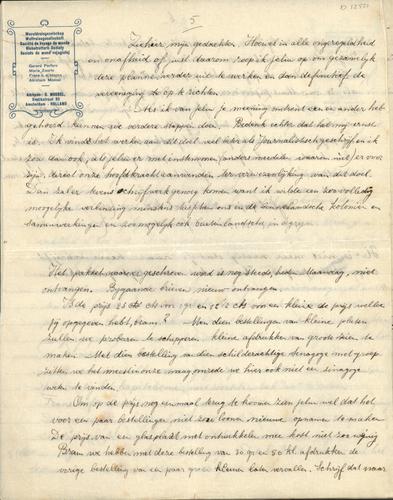 D 12551
5
Wereldreisgenootschap
Weltreisegesellschaft
Société de voyage du monde
Globetrotters Society
Società de mondi
Gerard Perfors
Maria Zwarts
Frans v.
Abraham Mossel
Adres: G. MOSSEL
Amsterdam - HOLLAND
Ziehier, mijn gedachten. Hoewel in alle ongeregeldheid
en onafheid of juist daarom roep ik jelui op ons gezamelijk
deze plannen verder uit te werken en dan definitief de
vereeniging te op te richten.
Als ik van jelui je meening omtrent een en ander heb
gehoord kunnen we verder stappen doen. Bedenk echter dat het mij ernst
is. Ik vind het werken aan dit doel veel beter als Journalistiek geschrijf en ik
zou dan ook, als jelui er met instemmen, anders medeleden waren niet er voor
zijn, direct onze hoofdkracht aanwenden ter verwezenlijking van dit doel.
Dan zal er tevens schrijfwerk genoeg komen want ik wilde een zoo volledig
mogelijke verbinding minstens in ons en de Nederlandsche Koloniën en
samenwerkingen en zoo mogelijk ook buitenlandsche in
Het pakket waarover geschreven werd is nog steeds, heden Maandag, niet
ontvangen. Bijgaande brieven nieuw-ontvangen.
Is de prijs 25 cts om en 12½ cts voor een kleine de prijs welke
jij opgegeven hebt, Bram? Van dien bestellingen van kleine platen
zullen we probeeren te schipperen kleine afdrukken van groote te
maken. Met dien bestelling van dien schilderachtige Synagoge met groep
zitten we het meest in onze maag omreden we hier ook niet een sinagoge
weten te vinden.
Om op de prijs nog eenmaal terug te komen zien jelui wel dat het
voor een paar bestellingen niet zou loonen nieuwe opnamen te maken
De prijs van een glasplaat met ontwikkelen mee kost niet zoo weinig
Bram we hebben met deze bestelling van 30 gr en 50 kl. afdrukken de
vorige bestelling van een paar groot kleinen laten vervallen. Schrijf dat maar